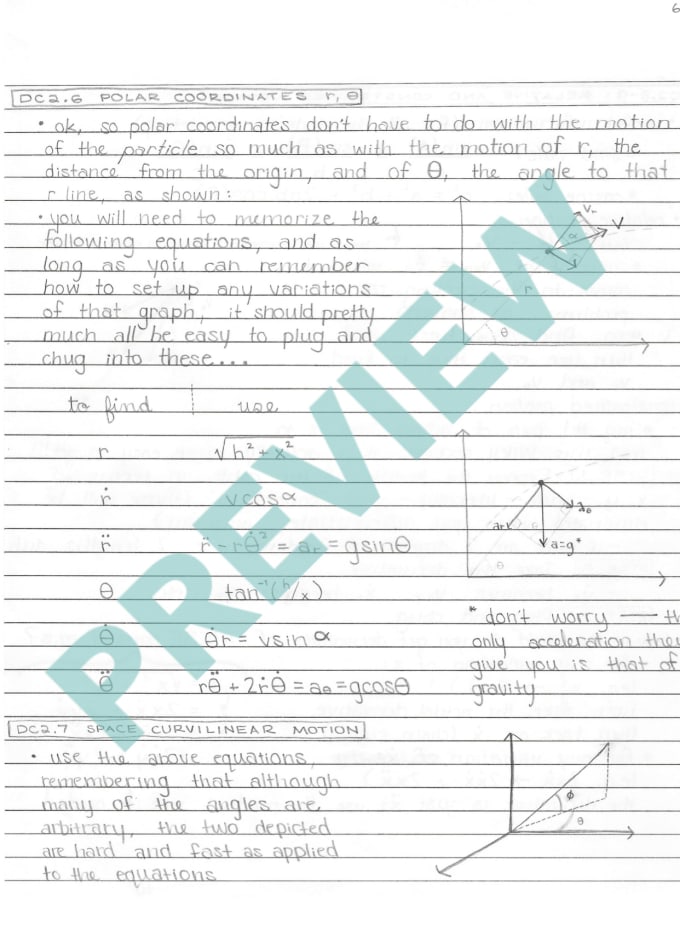 6
DC2.6 POLAR COORDINATES r, θ
• ok, so polar coordinates don't have to do with the motion
of the particle so much as with the motion of r, the
distance from the origin, and of θ, the angle to that
r line, as shown:
• you will need to memorize the
following equations, and as
long as you can remember
how to set up any variations
of that graph, it should pretty
much all be easy to plug and
chug into these...
Vr
V
α
r
θ
to find | use
r √h² + x²
ṙ vcosα
r̈ r̈ - rθ̇² = ar = gsinθ
θ tan⁻¹(h/x)
θ̇ θ̇r = vsin α
θ̈ rθ̈ + 2ṙθ̇ = aθ = gcosθ
ar
aθ
a=g*
θ
* don't worry — th
only acceleration they
give you is that of
gravity
DC2.7 SPACE CURVILINEAR MOTION
• use the above equations,
remembering that although
many of the angles are
arbitrary, the two depicted
are hard and fast as applied
to the equations
φ
θ
PREVIEW